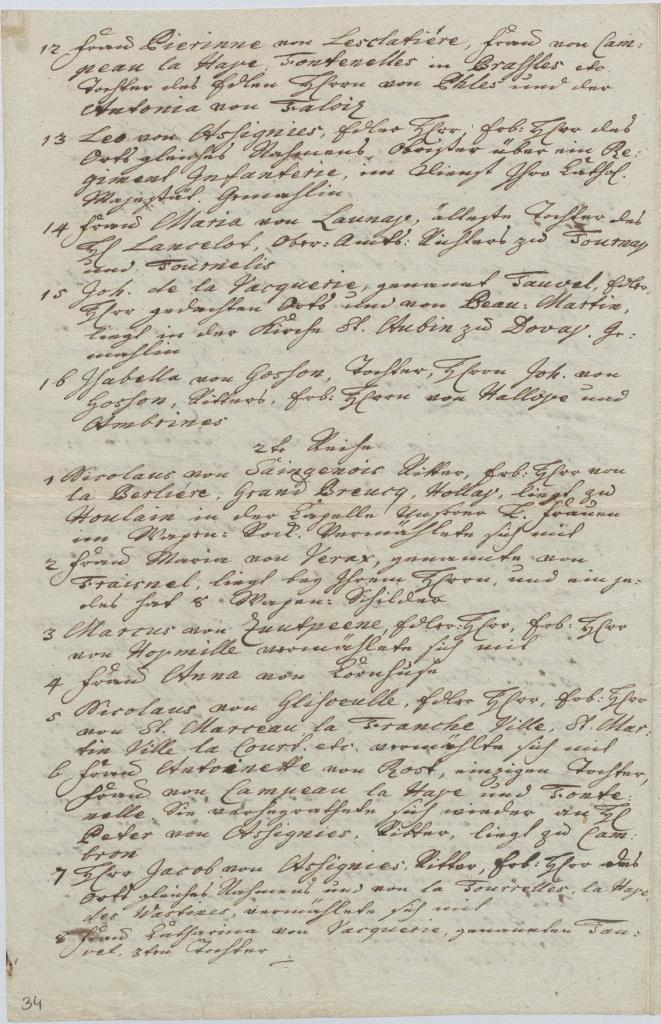 12 Frau Pierinne von Lesclatiére, Frau von Cam=
peau la Haye, Fontenelles in Brassles etc
Tochter des Edlen Herrn von Phles und der
Antonia von Taloig
13 Leo von Assignies, Edler Herr, Erb: Herr des
Orts gleiches Nahmens, Obrister über ein Re=
giment Infanterie, im Dienst Ihro Kathol.
Majestät. Gemahlin
14 Frau Maria von Launay, älteste Tochter des
H. Lancelot, Ober=Amts=Richters zu Tournay
und Tournelis
15 Joh. de la Vacquerie, genannt Tauvel, Edler
Herr gedachten Orts und von Beau=Martin,
liegt in der Kirche St. Aubin zu Dovay. Ge=
mahlin
16 Isabella von Gosson, Tochter, Herrn Joh. von
Gosson, Ritters, Erb: Herrn von Hallope und
Ambrines
2te Reihe
1 Nicolaus von Taingenois Ritter, Erb: Herr von
la Berliére, Grand Breucq, Hollay, liegt zu
Houlain in der Kapelle Unserer L. Frauen
im Wapen=Rock. Vermählete sich mit
2 Frau Maria von Verex, genannte von
Fraisnel, liegt bey Ihrem Herrn, und ein je=
des hat 8 Wapen=Schilder
3 Marcus von Zuutpeene, Edler Herr, Erb: Herr
von Hopmille vermählete sich mit
4 Frau Anna von Kornhuse
5 Nicolaus von Glisoeulle, Edler Herr, Erb: Herr
von St. Marceau la Franche Ville, St. Mar=
tin Ville la Court. etc. vermählte sich mit
6 Frau Antoinette von Rost, einzigen Tochter,
Frau von Campeau la Haye und Fonte
nelle Sie verheyrathete sich wieder an H.
Peter von Assignies, Ritter, liegt zu Cam=
bron
7 Herr Jacob von Assignies, Ritter, Erb: Herr des
Orts gleiches Nahmens und von la Tourrelles, la Haye,
des Wastines, vermählete sich mit
8 Frau Katharina von Vacquerie, genannten Tau=
vel, 3ten Tochter
34